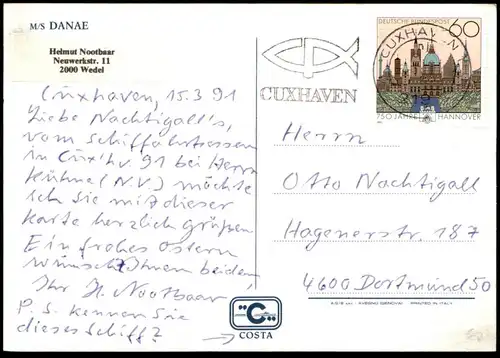 M/S DANAE
Helmut Nootbaar
Neuwerkstr. 11
2000 Wedel
Cuxhaven, 15.3.91
Liebe Nachtigall's,
vom Schiffahrtsessen
in Cux'hv. 91 bei Herrn
Kühne (N.V.) möchte
ich Sie mit dieser
Karte herzlich grüßen
Ein frohes Ostern
wünscht Ihnen beiden
Ihr H. Nootbaar
P.S. kennen Sie
dieses Schiff? →
C
COSTA
CUXHAVEN
DEUTSCHE BUNDESPOST 60
CUXHAVEN
750 JAHRE HANNOVER
Herrn
Otto Nachtigall
Hagenerstr. 187
4600 Dortmund 50
PRINTED IN ITALY